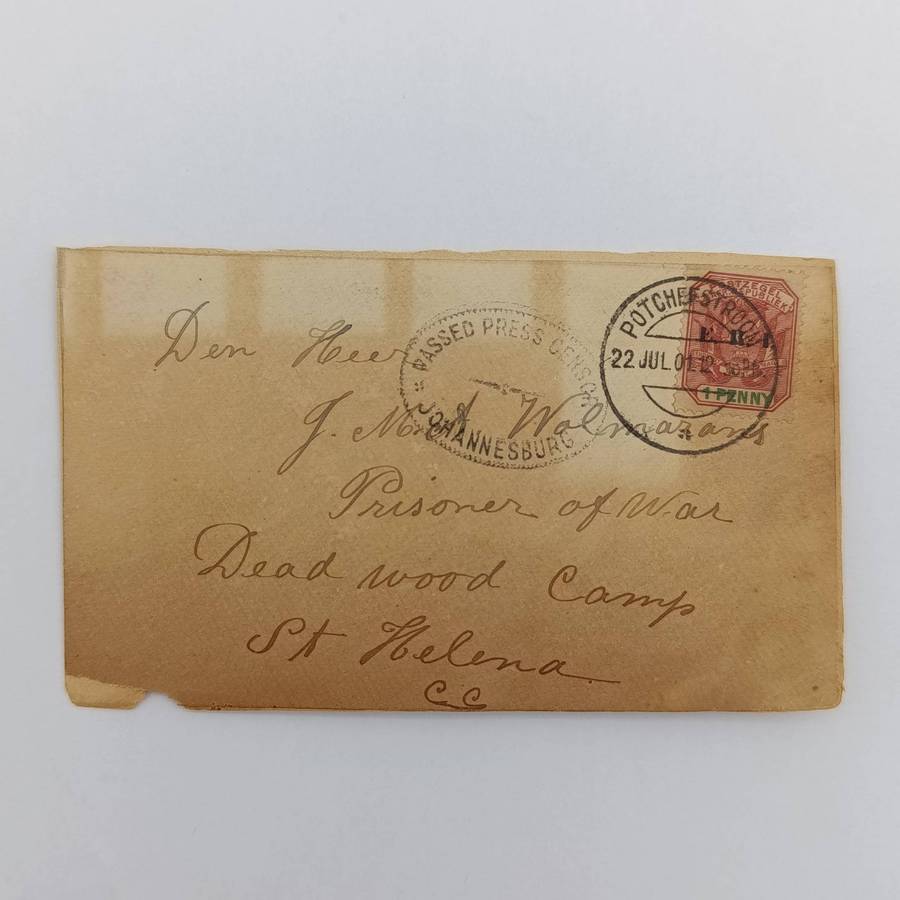 Den Heer
J. M. A. Wolmarans
Prisoner of War
Dead wood Camp
St Helena
C.C
PASSED PRESS CENSOR
JOHANNESBURG
POTCHEFSTROOM
22 JUL.01.12
E.R.I
1 PENNY